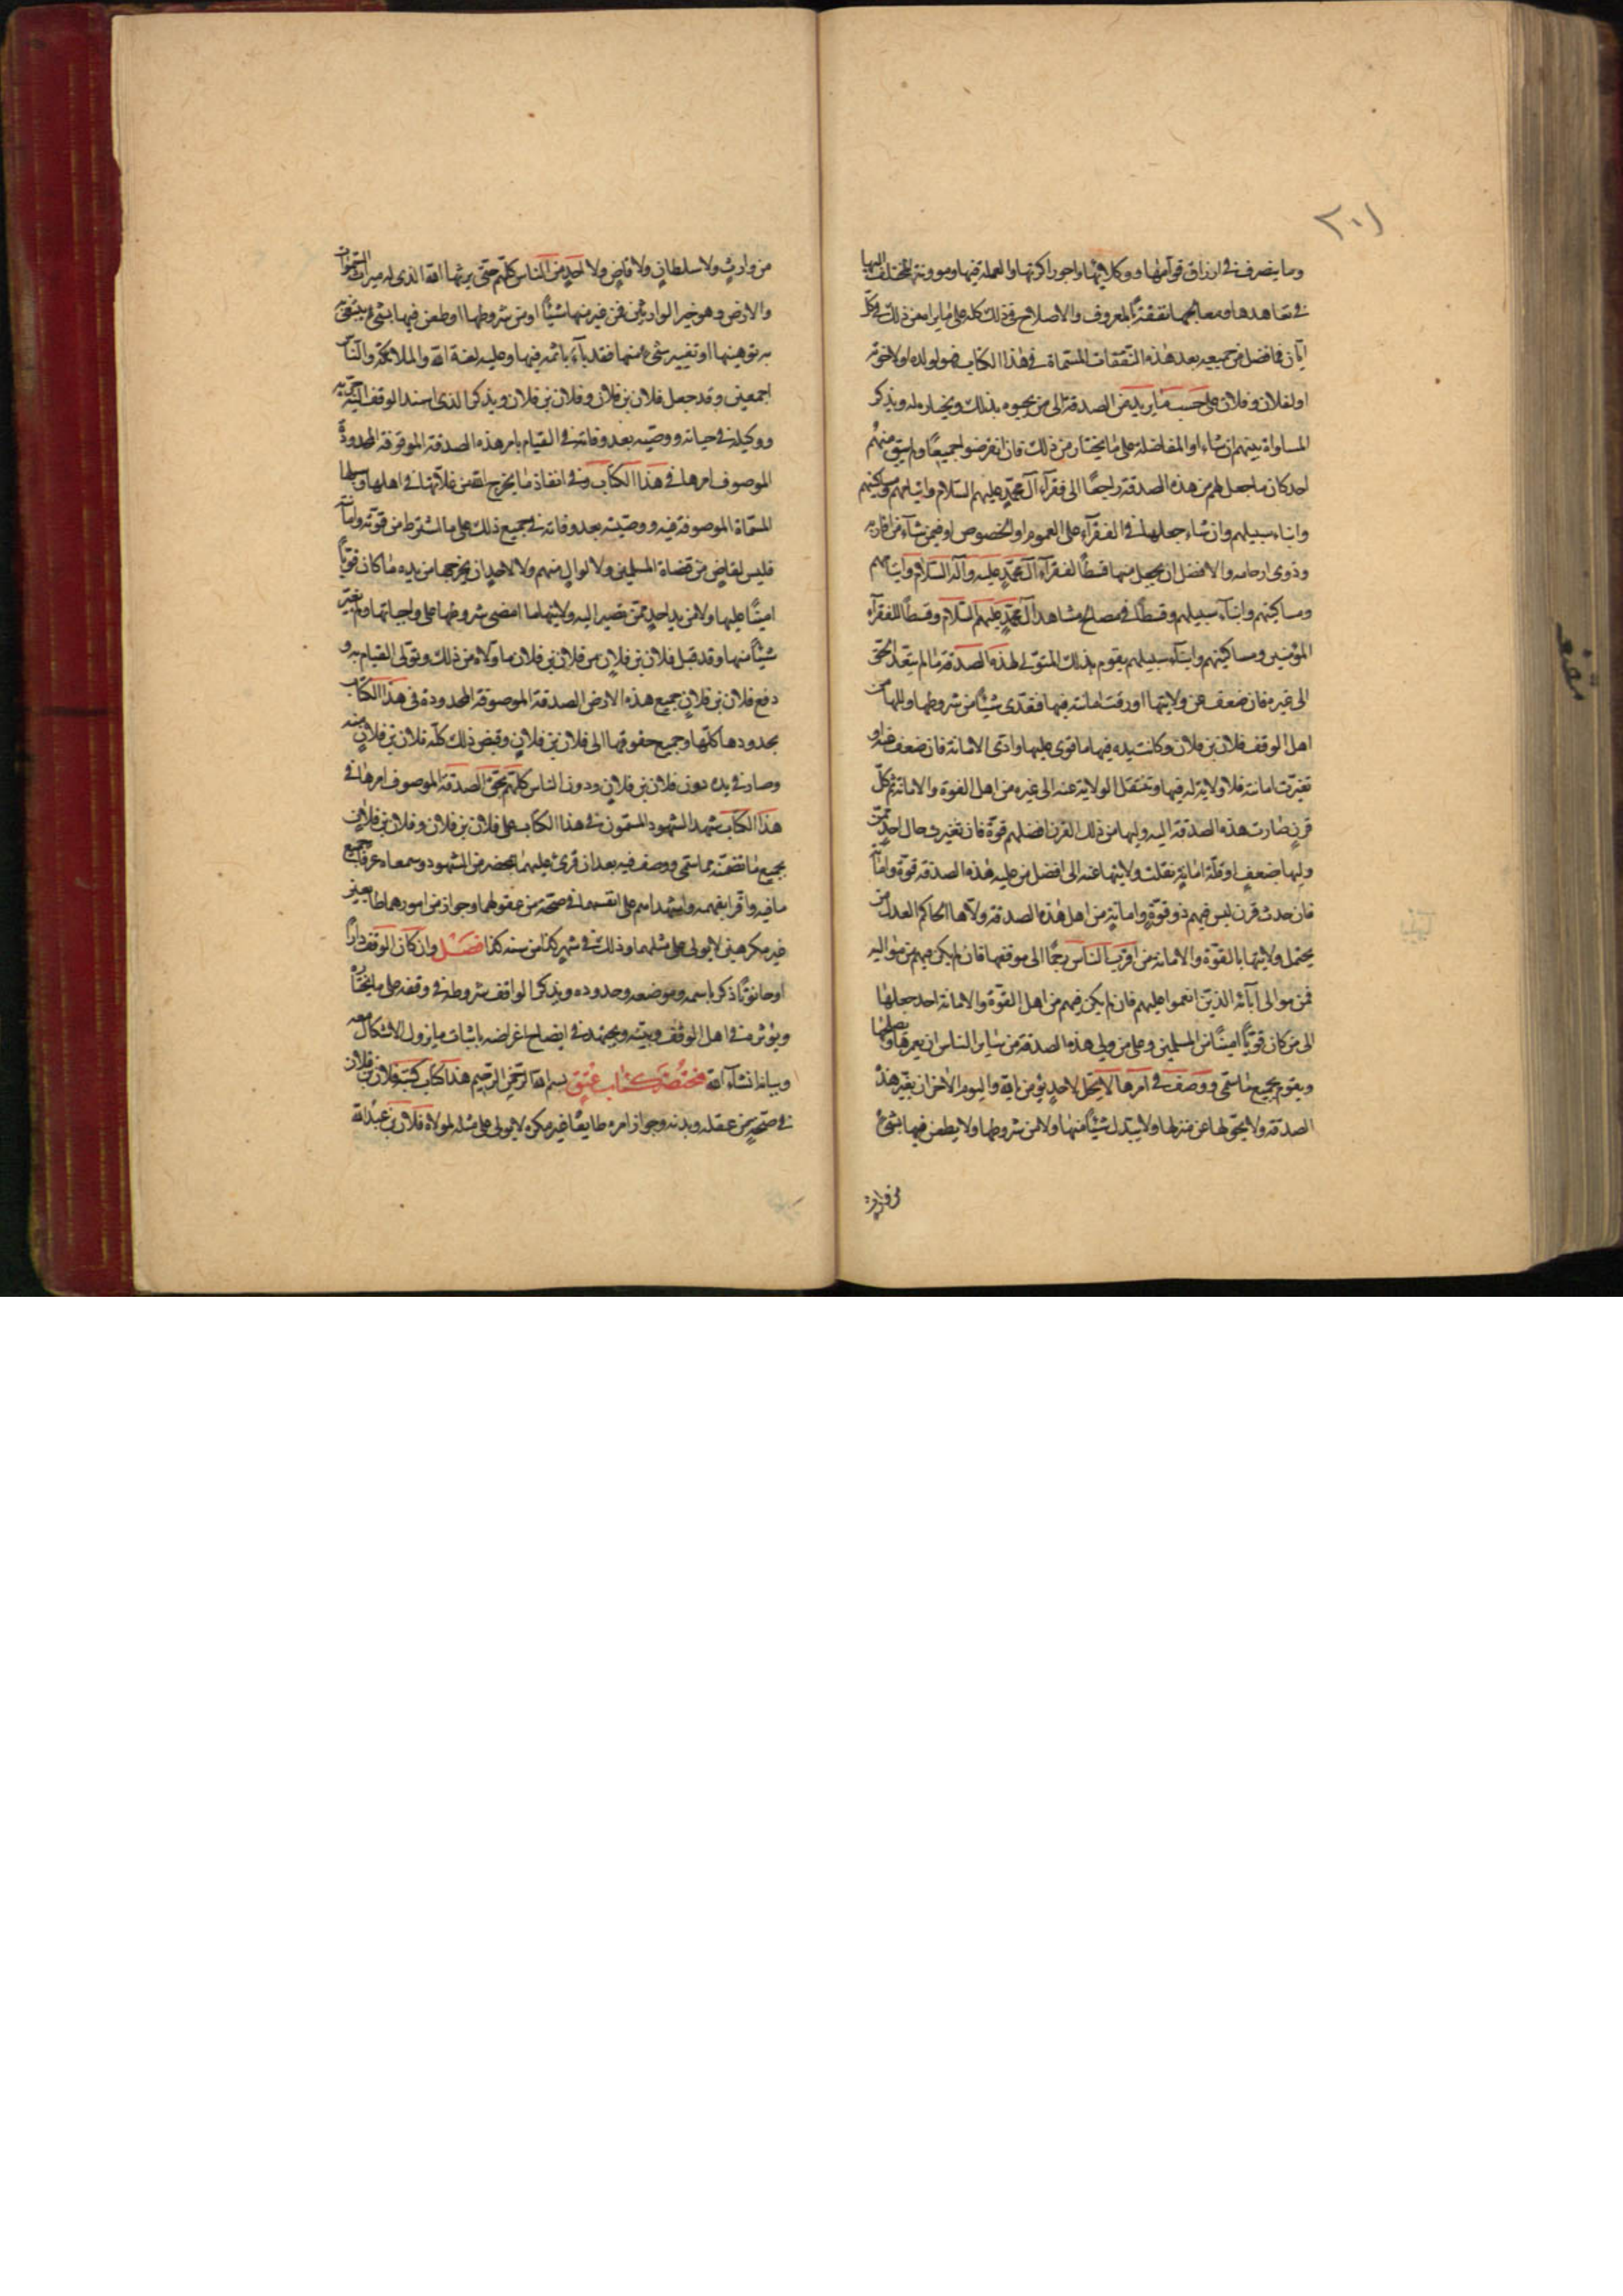 ٢٠١
وما ينصرف في ارزاق قوامها ووكلائها واجور اكرتها والعملة فيها ومؤونة المختلف اليها
في تعاهدها ومعالجها نفقة بالمعروف والاصلاح في ذلك كله على ما يراه من ذلك في كل
ابان فما فضل من جميعه بعد هذه النفقات المسماة في هذا الكتاب فهو لولده او لاخوته
او لفلان وفلان على حسب ما يريد من الصدقة الى من يحبوه بذلك ويختاره له ويذكر
المساواة بينهم ان شاء او المفاضلة على ما يختار من ذلك فان انقرضوا جميعًا ولم يبق منهم
احد كان ما جعل لهم من هذه الصدقة راجعًا الى فقرآء آل محمد عليهم السلام وايتامهم ومساكينهم
وابناء سبيلهم وان شاء جعلها في الفقرآء على العموم او الخصوص او فيمن شآء من اقاربه
وذوي ارحامه والافضل ان يجعل منها قسطًا لفقرآء آل محمد عليه وآله السلام وايتامهم
ومساكينهم وابنآء سبيلهم وقسطًا في مصالح مشاهد آل محمد عليهم السلام وقسطًا للفقرآء
المؤمنين ومساكينهم وابنآء سبيلهم يقوم بذلك المتولي لهذه الصدقة ما لم يتعد الحق
الى غيره فان ضعف عن ولايتها او رقت امانته فيها فتعدى شيئًا من شروطها وليها من
اهل الوقف فلان بن فلان وكانت بيده فيها ما قوى عليها وادى الامانة فان ضعف عنه او
تغيرت امانته فلا ولاية له فيها وتنتقل الولاية عنه الى غيره من اهل القوة والامانة ثم كل
قرن صارت هذه الصدقة اليه وليها من ذلك القرن افضلهم قوة فان تغيرت حال احد ممن
وليها بضعف او قلة امانة نقلت ولايتها عنه الى افضل من عليه هذه الصدقة قوة وامانة
فان حدث قرن ليس فيهم ذو قوة وامانة من اهل هذه الصدقة ولاها الحاكم العدل من
يحتمل ولايتها بالقوة والامانة من اقرب الناس رحمًا الى موقفها فان لم يكن فيهم من مواليه
فمن موالي آبائه الذين انعموا عليهم فان لم يكن فيهم من اهل القوة والامانة احد جعلها
الى من كان قويًا امينًا من المسلمين وعلى من ولي هذه الصدقة من سائر الناس ان يعمرها ويصلحها
ويقوم بجميع ما سمي ووصف في امرها لا يحل لاحد يؤمن بالله واليوم الاخر ان يغير هذه
الصدقة ولا يحولها عن منزلها ولا يبدل شيئًا منها ولا من شروطها ولا يطعن فيها بشئ
من وارث
من وارث ولا سلطان ولا قاض ولا احد من الناس كلهم حتى يرثها الله الذي له ميراث السموات
والارض وهو خير الوارثين فمن غير منها شيئًا او من شروطها او طعن فيها بشئ يبتغي
به توهينها او تغيير شئ منها فقد بآء باثمه فيها وعليه لعنة الله والملائكة والناس
اجمعين وقد جعل فلان بن فلان وفلان بن فلان ويذكر الذي اسند الوقف اليه
ووكيله في حياته ووصيه بعد وفاته في القيام بامر هذه الصدقة الموقوفة المحدودة
الموصوف امرها في هذا الكتاب وفي انفاذ ما يخرج الله من غلاتها في اهلها وسبلها
المسماة الموصوفة فيه ووصيته بعد وفاته في جميع ذلك على ما اشترط من قوته وامانته
فليس لقاض من قضاة المسلمين ولا لوال منهم ولا لاحد ان يخرجها من يده ما كان قويًا
امينًا عليها ولا من يد احد ممن تصير اليه ولايتها ما امضى شروطها على واجباتها ولم يغير
شيئًا منها وقد قبل فلان بن فلان من فلان بن فلان ما ولاه من ذلك وتولى القيام به و
دفع فلان بن فلان جميع هذه الارض الصدقة الموصوفة المحدودة في هذا الكتاب
بحدودها كلها وجميع حقوقها الى فلان بن فلان وقبض ذلك كله فلان بن فلان منه
وصار في يده دون فلان بن فلان ودون الناس كلهم بحق الصدقة الموصوف امرها في
هذا الكتاب شهد الشهود المسمون في هذا الكتاب على فلان بن فلان وفلان بن فلان
بجميع ما تضمنه مما سمي ووصف فيه بعد ان قرئ عليهما بمحضر من الشهود وسمعاه وعرفا جميع
ما فيه واقرا بفهمه واشهداهم على انفسهما في صحة من عقولهما وجواز من امورهما طايعين
غير مكرهين لا يولى على مثلهما وذلك في شهر كذا من سنة كذا فصل وان كان الوقف دارًا
او حانوتًا ذكر باسمه وموضعه وحدوده ويذكر الواقف شروطه في وقفه على ما يختاره
ويؤثره في اهل الوقف وبيته ويجتهد في ايضاح اغراضه باثبات ما يزول الاشكال معه
وبيانه انشآء الله مختصر كتاب عتق بسم الله الرحمن الرحيم هذا كتاب كتبه فلان بن فلان
في صحة من عقله وبدنه وجواز امره طايعًا غير مكره لا يولى على مثله لمولاه فلان بن عبد الله